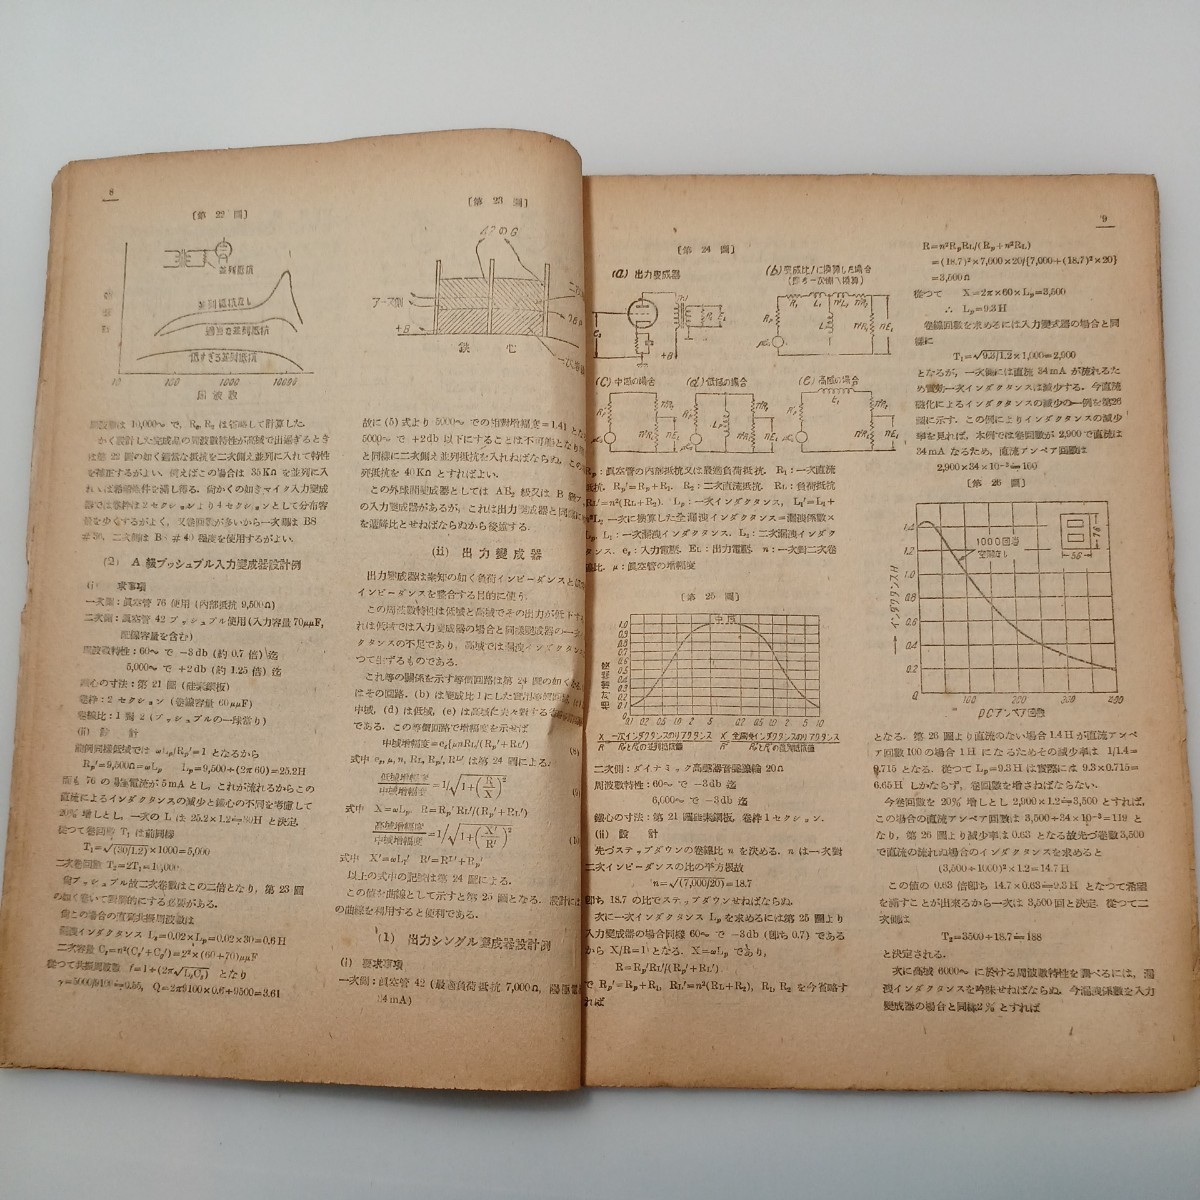 8
〔第 22 圖〕
並列抵抗
並列抵抗なし
適當な並列抵抗
低すぎる並列抵抗
10 100 1000 10000
周波数
〔第 23 圖〕
アース側
+B
鉄 心
周波數は 10,000〜 で、R₁, R₂ は省略して計算した
かく設計した完成品の周波數特性が高域で出過ぎるとき
は第 22 圖の如く適當な抵抗を二次側え並列に入れて特性
を補正するがよい。例えばこの場合は 35KΩ を並列に入
器では巻枠は2セクションより4セクションとして分布容
量を少くするがよく、又巻回數が多いから一次線は BS
#36, 二次側は BS #40 程度を使用するがよい。
(2) A 級プッシュプル入力變成器設計例
(i) 要求事項
一次側：眞空管 76 使用 (内部抵抗 9,500Ω)
二次側：眞空管 42 プッシュプル使用 (入力容量 70μμF,
配線容量を含む)
周波數特性：60〜 で −3db (約 0.7 倍) 迄
5,000〜 で +2db (約 1.25 倍) 迄
鐵心の寸法：第 21 圖 (硅素鋼板)
巻枠：2 セクション (巻線容量 60μμF)
巻線比：1 對 2 (プッシュプルの一球當り)
(ii) 設 計
前例同様低域では ωLp/Rp'=1 となるから
Rp'=9,500Ω=ωLp Lp=9,500÷(2π60)=25.2H
而も 76 の陽極電流が 5mA とし、これが流れるからこの
直流によるインダクタンスの減少と鐵心の不同を考慮して
20% 増しとし、一次の L は 25.2×1.2≒30H と決定.
從つて巻回數 T₁ は前同様
T₁=√(30/1.2)×1000=5,000
二次巻回數 T₂=2T₁=10,000.
尙プッシュプル故二次巻數はこの二倍となり、第 23 圖
の如く巻いて對稱的にする必要がある。
尙この場合の直列共振周波數は
漏洩インダクタンス Ls=0.02×Lp=0.02×30=0.6H
二次容量 Cs=n²(Cs'+Cg')=2²×(60+70)μμF
從つて共振周波數 f=1÷(2π√LsCs) となり
故に (5) 式より 5000〜 での相對増幅度=1.41 とな
5000〜 で +2db 以下にすることは不可能となり
と同様に二次側え並列抵抗を入れねばならぬ。この
列抵抗を 40KΩ とすればよい。
この外球間變成器としては AB₂ 級又は B 級プ
の入力變成器があるが、これは出力變成器と同様に
を遞降比とせねばならぬから後述する.
(ii) 出力變成器
出力變成器は衆知の如く負荷インピーダンスと
インピーダンスを整合する目的に使う.
この周波數特性は低域と高域でその出力が低下す
れは低域では入力變成器の場合と同様變成器の一次
クタンスの不足であり、高域では漏洩インダクタン
つて生ずるものである.
これ等の關係を示す等價回路は第 24 圖の如く
はその回路、(b) は變成比 1 にした
中域、(d) は低域、(e) は高域に夫々對する
である。この等價回路で増幅度を示せば
中域増幅度=eg{μnRL/(Rp'+RL')
式中 eg, μ, n, RL, Rp', RL' は第 24 圖による.
低域増幅度/中域増幅度=1/√1+(R/X)²
式中 X=ωLp, R=Rp'RL'/(Rp'+RL')
高域増幅度/中域増幅度=1/√1+(X'/R')²
(10
式中 X'=ωLl' R'=RL'+Rp'
以上の式中の記號は第 24 圖による.
この値を曲線として示すと第 25 圖となる、設計には
の曲線を利用すると便利である.
(1) 出力シングル變成器設計例
(i) 要求事項
一次側：眞空管 42 (最適負荷抵抗 7,000Ω,
34mA)
9
〔第 24 圖〕
(a) 出力変成器
(b) 変成比1に換算した場合
(c) 中域の場合
(d) 低域の場合
(e) 高域の場合
Rp：眞空管の内部抵抗又は最適負荷抵抗. R₁：一次直流
抵抗. Rp'=Rp+R₁. R₂：二次直流抵抗. RL：負荷抵抗
RL'=n²(RL+R₂). Lp：一次インダクタンス, Ll'=L₁+
n²L₂ 一次に換算した全漏洩インダクタンス=漏洩係數×
Lp. L₁：一次漏洩インダクタンス. L₂：二次漏洩インダク
タンス. eg：入力電壓. EL：出力電壓. n：一次對二次巻
線比. μ：眞空管の増幅度
〔第 25 圖〕
中 域
1.0
0.9
0.8
0.7
0.6
0.5
0.4
0.3
0.2
0.1
0.1 0.2 0.5 1.0 2 5 0.2 0.5 1.0 2 5 10
二次側：ダイナミック高聲器音聲線輪 20Ω
周波數特性：60〜 で −3db 迄
6,000〜 で −3db 迄
鐵心の寸法：第 21 圖硅素鋼板、巻枠 1 セクション.
(ii) 設 計
先づステップダウンの巻線比 n を決める、n は一次對
二次インピーダンスの比の平方根故
n=√(7,000/20)=18.7
卽ち 18.7 の比でステップダウンせねばならぬ.
次に一次インダクタンス Lp を求めるには第 25 圖より
入力變成器の場合同様 60〜 で −3db (卽ち 0.7) である
から X/R=1 となる、X=ωLp であり、
R=Rp'RL'/(Rp'+RL')
で Rp'=Rp+R₁, RL'=n²(RL+R₂), R₁, R₂ を今省略す
れば
R=n²RpRL/(Rp+n²RL)
=(18.7)²×7,000×20/{7,000+(18.7)²×20}
=3,500Ω
從つて X=2π×60×Lp=3,500
∴ Lp=9.3H
巻線回數を求めるには入力變成器の場合と同
樣に
T₁=√9.3/1.2×1,000=2,900
となるが、一次側には直流 34mA が流れるた
め實効一次インダクタンスは減少する. 今直流
磁化によるインダクタンスの減少の一例を第26
圖に示す. この例によりインダクタンスの減少
率を見れば、本例では巻回數が 2,900 で直流は
34mA なるため、直流アンペア回數は
2,900×34×10⁻³≒100
〔第 26 圖〕
1000回巻
空隙なし
76
56
→インダクタンスH
1.4
1.2
1.0
0.8
0.6
0.4
0.2
0
100 200 300 400
DCアンペア回数
となる. 第 26 圖より直流のない場合 1.4H が直流アンペ
ア回數 100 の場合 1H になるためその減少率は 1/1.4=
0.715 となる. 從つて Lp=9.3H は實際には 9.3×0.715=
6.65H しかならず、巻回數を増さねばならない.
今巻回數を 20% 増しとし 2,900×1.2≒3,500 とすれば、
この場合の直流アンペア回數は 3,500÷34×10⁻³=119 と
なり、第 26 圖より減少率は 0.63 となる故先づ巻數 3,500
で直流の流れぬ場合のインダクタンスを求めると
(3,500÷1000)²×1.2=14.7H
この値の 0.63 倍卽ち 14.7×0.63≒9.3H となつて希望
を滿すことが出來るから一次は 3,500 回と決定. 從つて二
次側は
T₂=3500÷18.7≒188
と決定される.
次に高域 6000〜 に於ける周波數特性を調べるには、漏
洩インダクタンスを吟味せねばならぬ. 今漏洩係數を入力
變成器の場合と同様2%とすれば